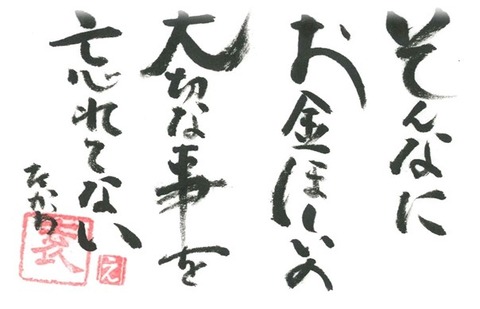 そんなに
お金ほしいの
大切な事を
忘れてない
たかち
え